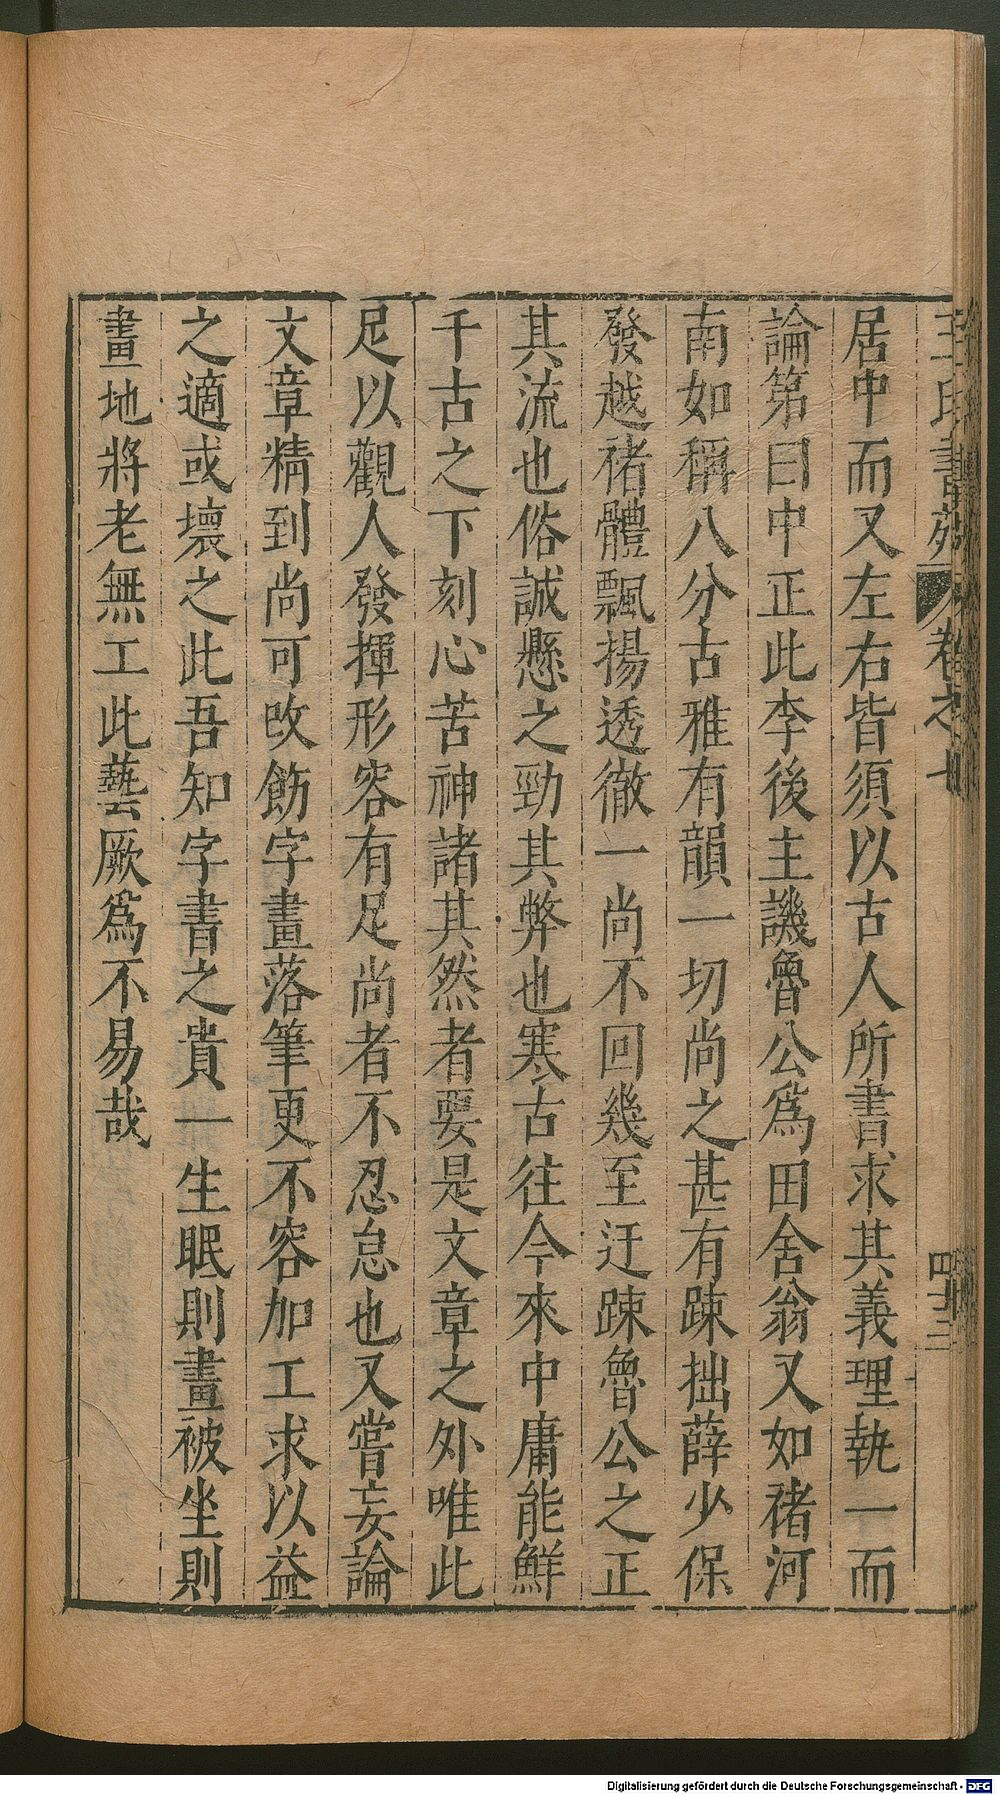 王氏書苑 卷之七 四十三
居中而又左右皆須以古人所書求其義理執一而
論第曰中正此李後主譏魯公爲田舍翁又如褚河
南如稱八分古雅有韻一切尚之甚有踈拙薛少保
發越褚體飄揚透徹一尚不回幾至迂踈魯公之正
其流也俗誠懸之勁其弊也寒古往今來中庸能鮮
千古之下刻心苦神諸其然者要是文章之外唯此
足以觀人發揮形容有足尚者不忍怠也又嘗妄論
文章精到尚可改飭字畫落筆更不容加工求以益
之適或壞之此吾知字書之貴一生眠則畫被坐則
畫地將老無工此藝厥爲不易哉
Digitalisierung gefördert durch die Deutsche Forschungsgemeinschaft - DFG